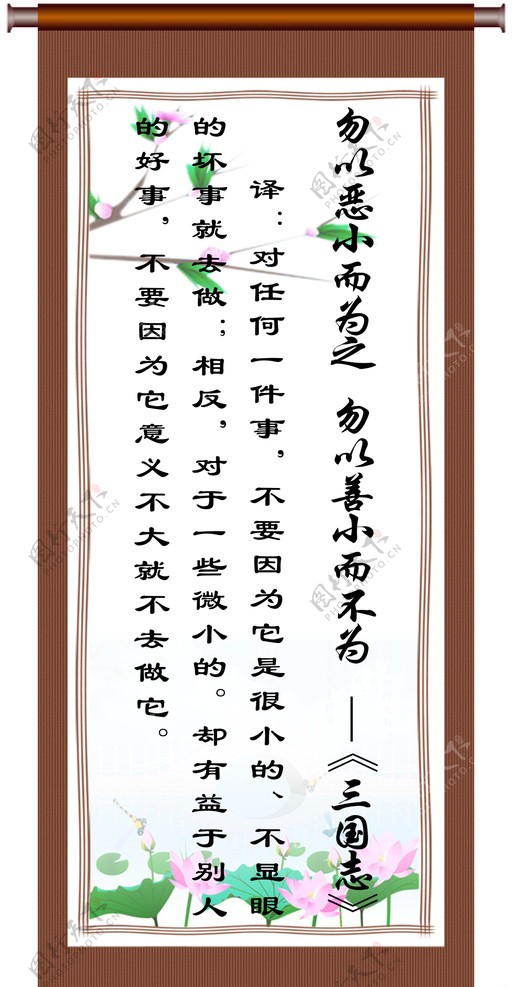 勿以恶小而为之 勿以善小而不为 ——《三国志》
译：对任何一件事，不要因为它是很小的、不显眼
的坏事就去做；相反，对于一些微小的。却有益于别人
的好事，不要因为它意义不大就不去做它。
图行天下
PHOTOPHOTO.CN